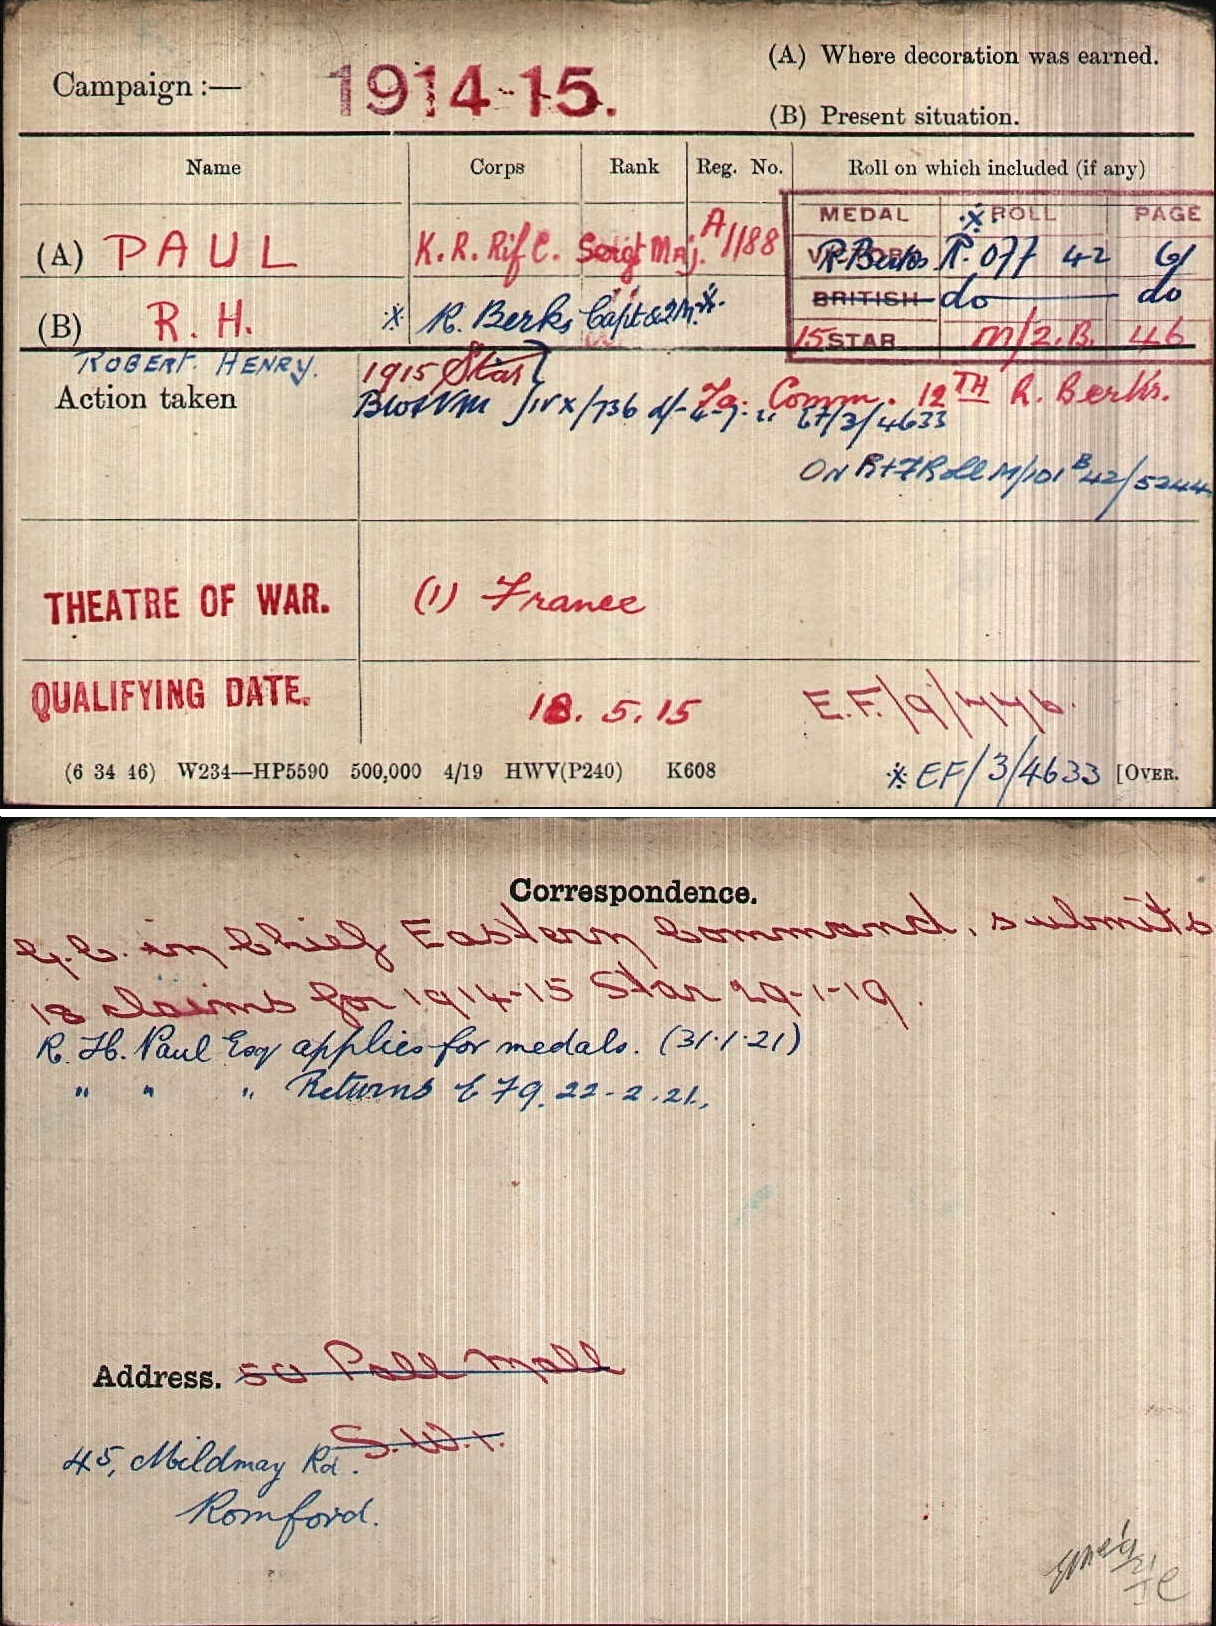 Campaign :— 1914-15.
(A) Where decoration was earned.
(B) Present situation.
Name Corps Rank Reg. No. Roll on which included (if any)
MEDAL ROLL PAGE
(A) PAUL K. R. Rif C. Sergt Maj. A/1188 R. Berks R. Off 42 61
(B) R. H. R. Berks Capt & 2M. BRITISH do do
15 STAR M/2.B. 46
ROBERT HENRY.
1915 Star
Action taken
To. Comm. 12TH R. Berks.
BWo & VM IVX/736 d/- 67/3/4633
ON R+F Roll M/101 B 42/5244
THEATRE OF WAR. (1) France
QUALIFYING DATE. 18. 5. 15 E.F./9/446.
(6 34 46) W234—HP5590 500,000 4/19 HWV(P240) K608
※ EF/3/4633 [OVER.
Correspondence.
G.C. in Chief Eastern Command, submits
18 claims for 1914-15 Star 29-1-19.
R. H. Paul Esq applies for medals. (31.1.21)
" " " Returns E F9. 22-2.21.
Address. 50 Pall Mall
S.W.1.
45, Mildmay Rd.
Romford.